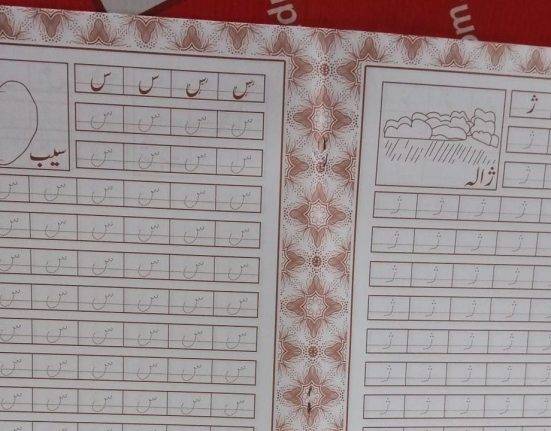 ژ
ژ
ژ
ژالہ
ژ ژ ژ ژ
ژ ژ ژ ژ
ژ ژ ژ ژ
ژ ژ ژ ژ
ژ ژ ژ ژ
ژ ژ ژ ژ
ژ ژ ژ ژ
س س س س
س س س س
س س س س
سیب
س س س س س س
س س س س س س
س س س س س س
س س س س س س
س س س س س س
س س س س س س
س س س س س س